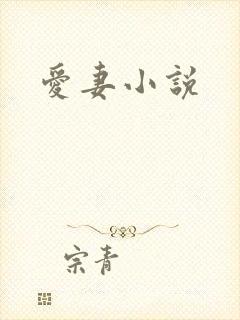 愛妻小說
宗青